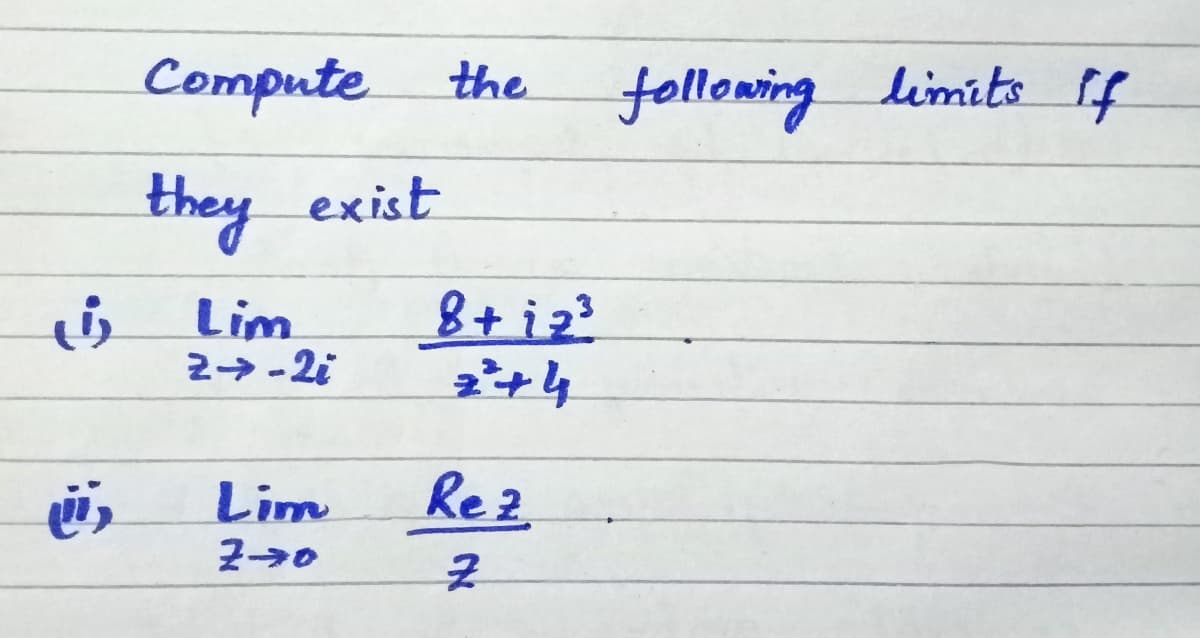 Compute the following limits if
they exist
(i) Lim z→-2i (8+iz³)/(z²+4) .
(ii) Lim z→0 (Re z)/z .